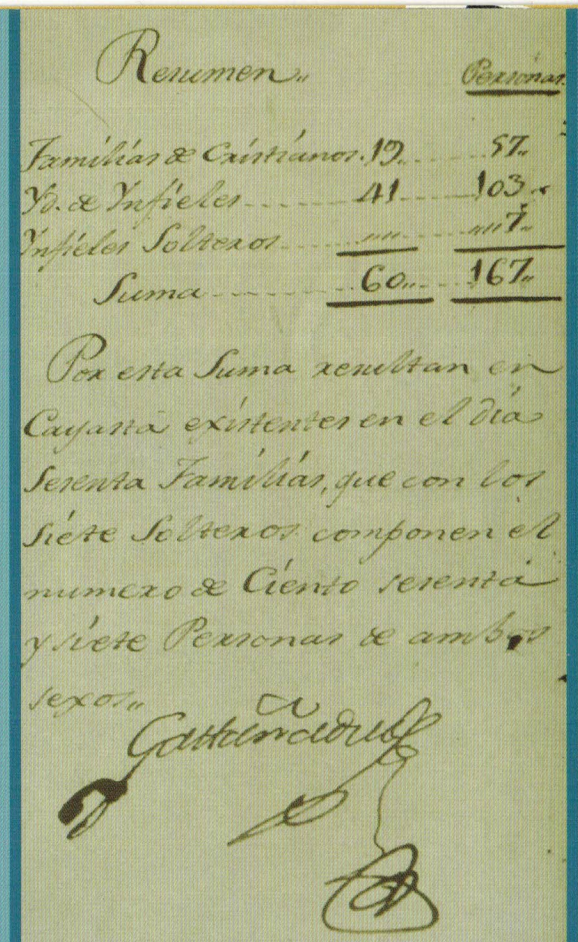 Resumen,, Personas.
Familias de Cristianos. 19.. 57..
Yd. de Ynfieles 41 103..
Ynfieles Solteros ,,,, ,,,,7..
Suma 60,, 167,,
Por esta Suma resultan en
Cayastá existentes en el dia
Sesenta Familias, que con los
Siete Solteros componen el
numero de Ciento sesenta
y siete Personas de ambos
sexos,,